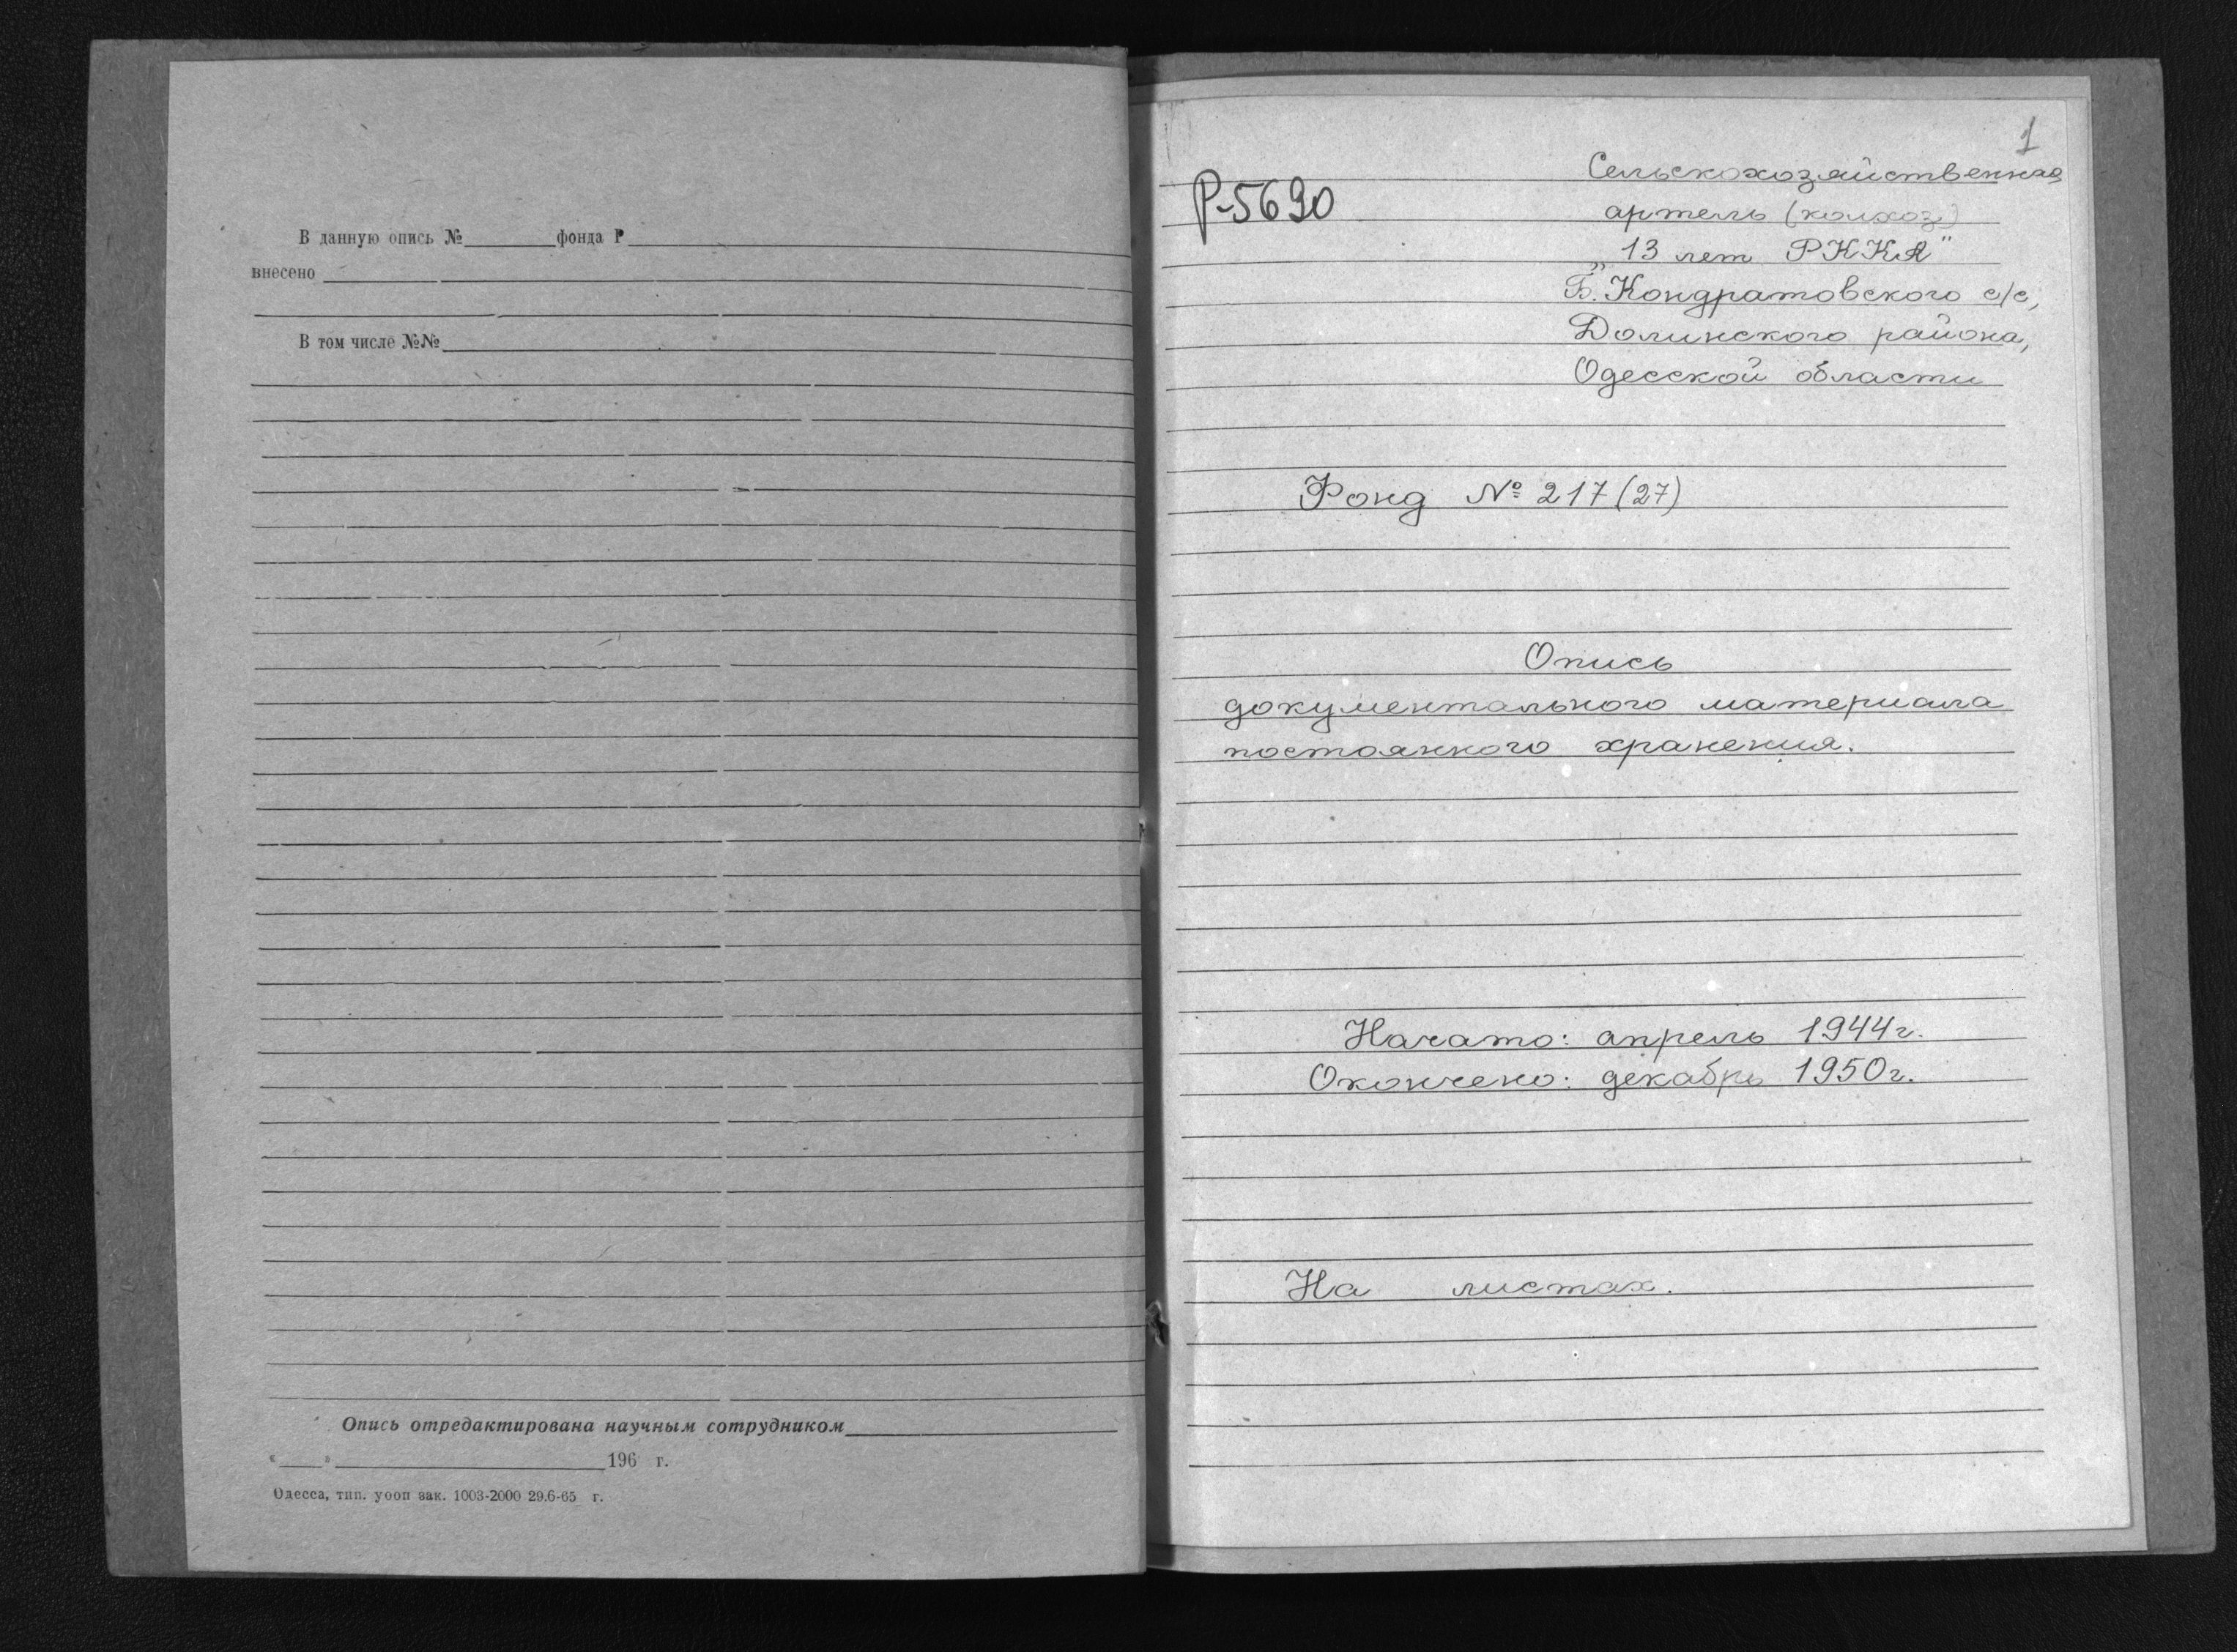 В данную опись № фонда Р
внесено
В том числе №№
Опись отредактирована научным сотрудником
« » 196 г.
Одесса, тип. уооп зак. 1003-2000 29.6-65 г.
1
Р-5690
Сельскохозяйственная
артель (колхоз)
„13 лет РККА"
Б. Кондратовского с/с,
Долинского района,
Одесской области
Фонд № 217 (27)
Опись
документального материала
постоянного хранения.
Начато: апрель 1944г.
Окончено: декабрь 1950г.
На листах.